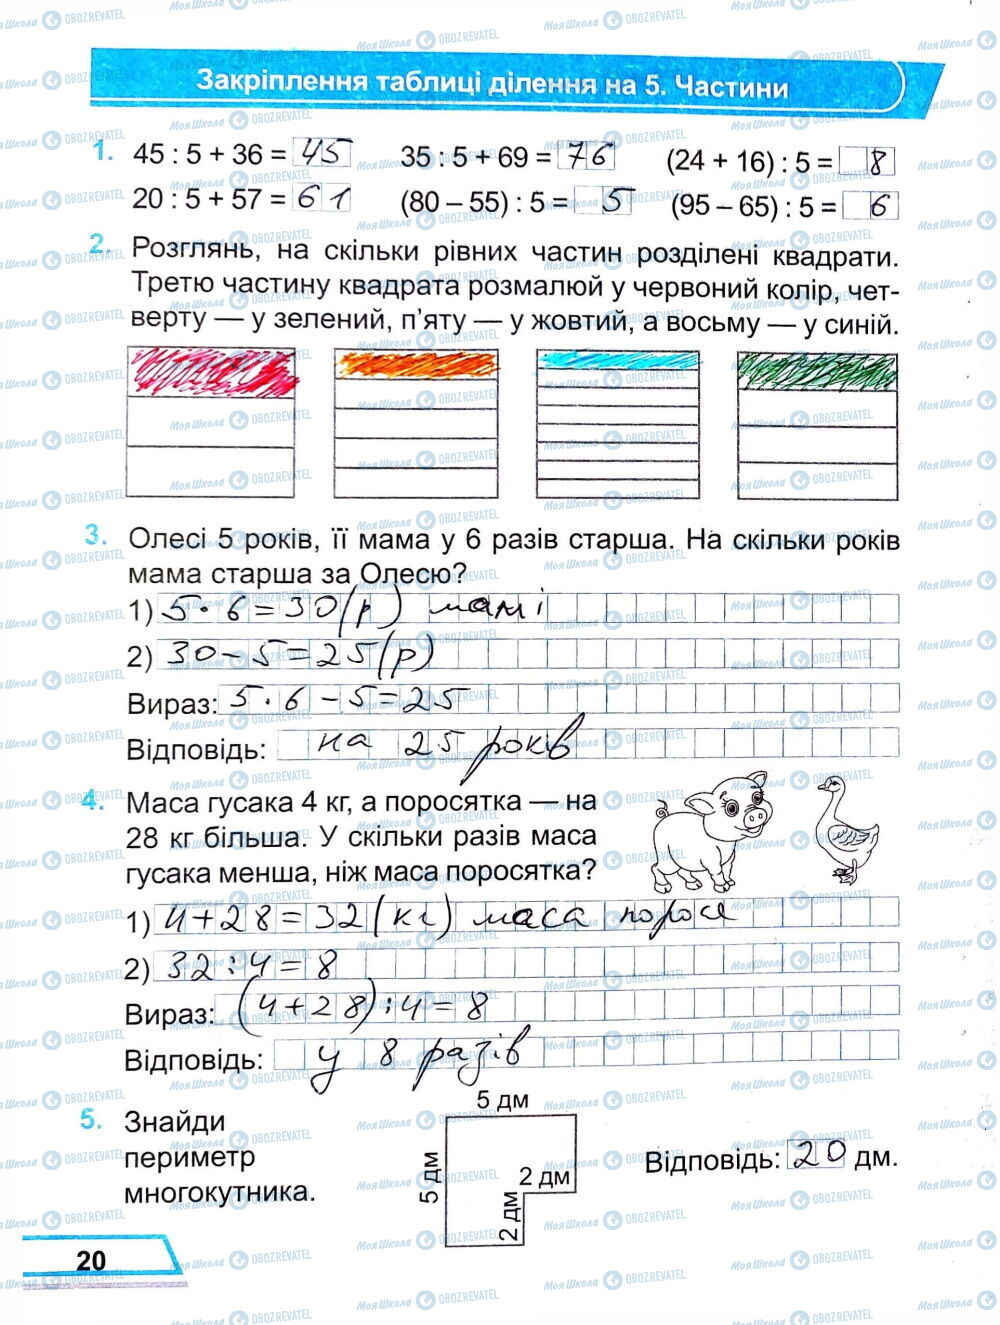 Закріплення таблиці ділення на 5. Частини
1. 45 : 5 + 36 = 45 35 : 5 + 69 = 76 (24 + 16) : 5 = 8
20 : 5 + 57 = 61 (80 – 55) : 5 = 5 (95 – 65) : 5 = 6
2. Розглянь, на скільки рівних частин розділені квадрати.
Третю частину квадрата розмалюй у червоний колір, чет-
верту — у зелений, п’яту — у жовтий, а восьму — у синій.
3. Олесі 5 років, її мама у 6 разів старша. На скільки років
мама старша за Олесю?
1) 5 · 6 = 30 (р) мамі
2) 30 – 5 = 25 (р)
Вираз: 5 · 6 – 5 = 25
Відповідь: на 25 років
4. Маса гусака 4 кг, а поросятка — на
28 кг більша. У скільки разів маса
гусака менша, ніж маса поросятка?
1) 4 + 28 = 32 (кг) маса порося
2) 32 : 4 = 8
Вираз: (4 + 28) : 4 = 8
Відповідь: у 8 разів
5. Знайди
периметр
многокутника.
5 дм
5 дм
2 дм
2 дм
Відповідь: 20 дм.
20
МояШкола OBOZREVATEL